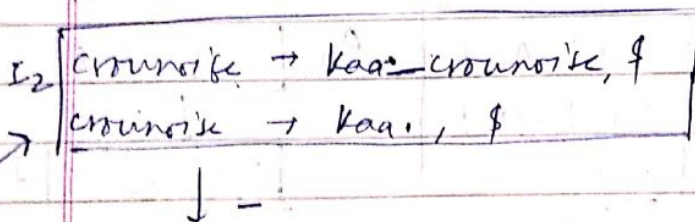 I₂ crounoise → kaa._crounoise, $
crounoise → kaa., $
↓ _